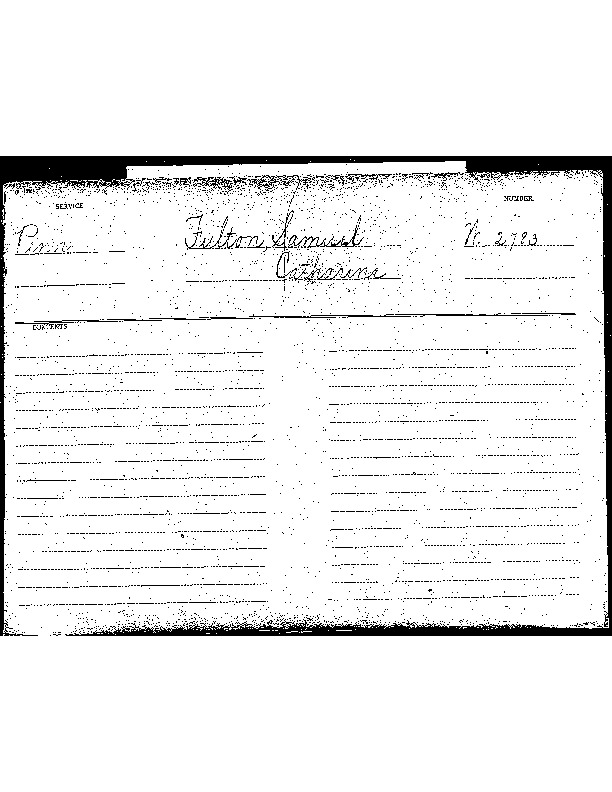 SERVICE
NUMBER.
Penn Fulton, Samuel W. 2783
Catharine
CONTENTS